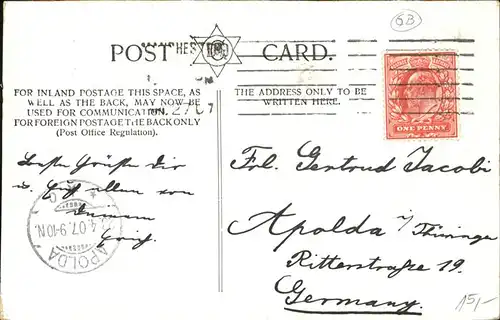 GB
POST CARD.
FOR INLAND POSTAGE THIS SPACE, AS
WELL AS THE BACK, MAY NOW BE
USED FOR COMMUNICATION.
FOR FOREIGN POSTAGE THE BACK ONLY
(Post Office Regulation).
THE ADDRESS ONLY TO BE
WRITTEN HERE.
ONE PENNY
Beste Grüße Dir
u. Euch allen von
Deinem
Erich.
APOLDA
4.07.9-10N.
Frl. Gertrud Jacobi
Apolda i/Thüringen
Ritterstraße 19.
Germany.
15,-